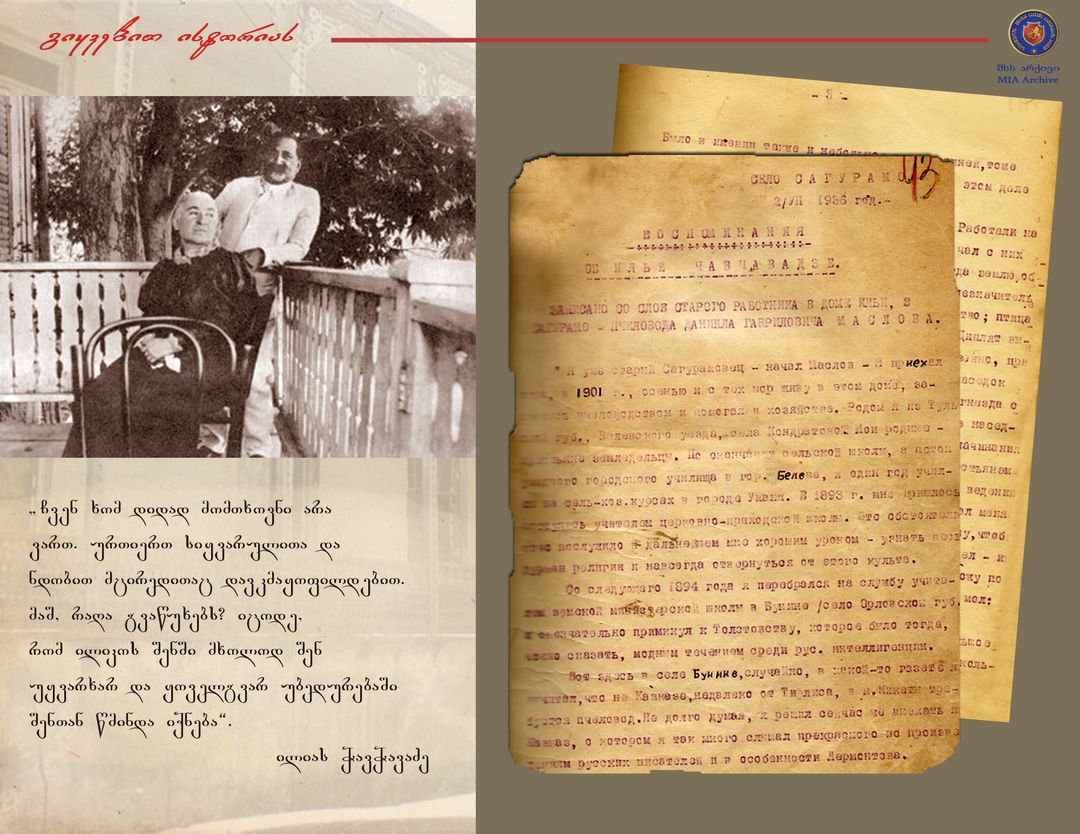 გიყვებით ისტორიას
შსს არქივი
MIA Archive
„ჩვენ ხომ დიდად მომთხოვნი არა
ვართ. ურთიერთ სიყვარულითა და
ნდობით მცირედითაც დავკმაყოფილდებით.
მაშ, რაღა გვაწუხებს? იცოდე,
რომ ილიკოს შენში მხოლოდ შენ
უყვარხარ და ყოველგვარ უბედურებაში
შენთან წმინდა იქნება“.
ილიას ჭავჭავაძე
- 3 -
Было в имении также и
этом деле
Работали на
СЕЛО САГУРАМО
43
2/УП 1936 год.-
ВОСПОМИНАНИЯ
ОБ ИЛЬЕ ЧАВЧАВАДЗЕ.
ЗАПИСАНО СО СЛОВ СТАРОГО РАБОТНИКА В ДОМЕ ИЛЬИ, В
САГУРАМО - ПЧЕЛОВОДА ДАНИИЛА ГАВРИЛОВИЧА МАСЛОВА.
"Я уже старый Сагурамовец - начал Маслов - Я приехал
в 1901 г., осенью и с тех пор живу в этом доме, за-
пчеловодством и помогая в хозяйстве. Родом я из Туль
губ., Белевского уезда, села Кондратовой Мои родные -
земледельцы. По окончании сельской школы, а потом
городского училища в гор. Белеве, я один год учил-
на сель-хоз.курсах в городе Умани. В 1893 г. мне пришлось
учителем церковно-приходской школы. Это обстоятель
послужило в дальнейшем мне хорошим уроком - узнать всю
религии и навсегда отвернуться от этого культа.
Со следующего 1894 года я перебрался на службу учите-
земской министерской школы в Бунине /село Орловской губ.
и окончательно примкнул к Толстовству, которое было тогда,
можно сказать, модным течением среди рус. интеллигенции.
Вот здесь в селе Бунине,случайно, в какой-то газете я
что на Кавказе,недалеко от Тифлиса, в м.Кикеты тре-
буется пчеловод.Не долго думая, я решил сейчас же поехать
Кавказ, о котором я так много слышал прекрасного по произве
дениям русских писателей и в особенности Лермонтова.